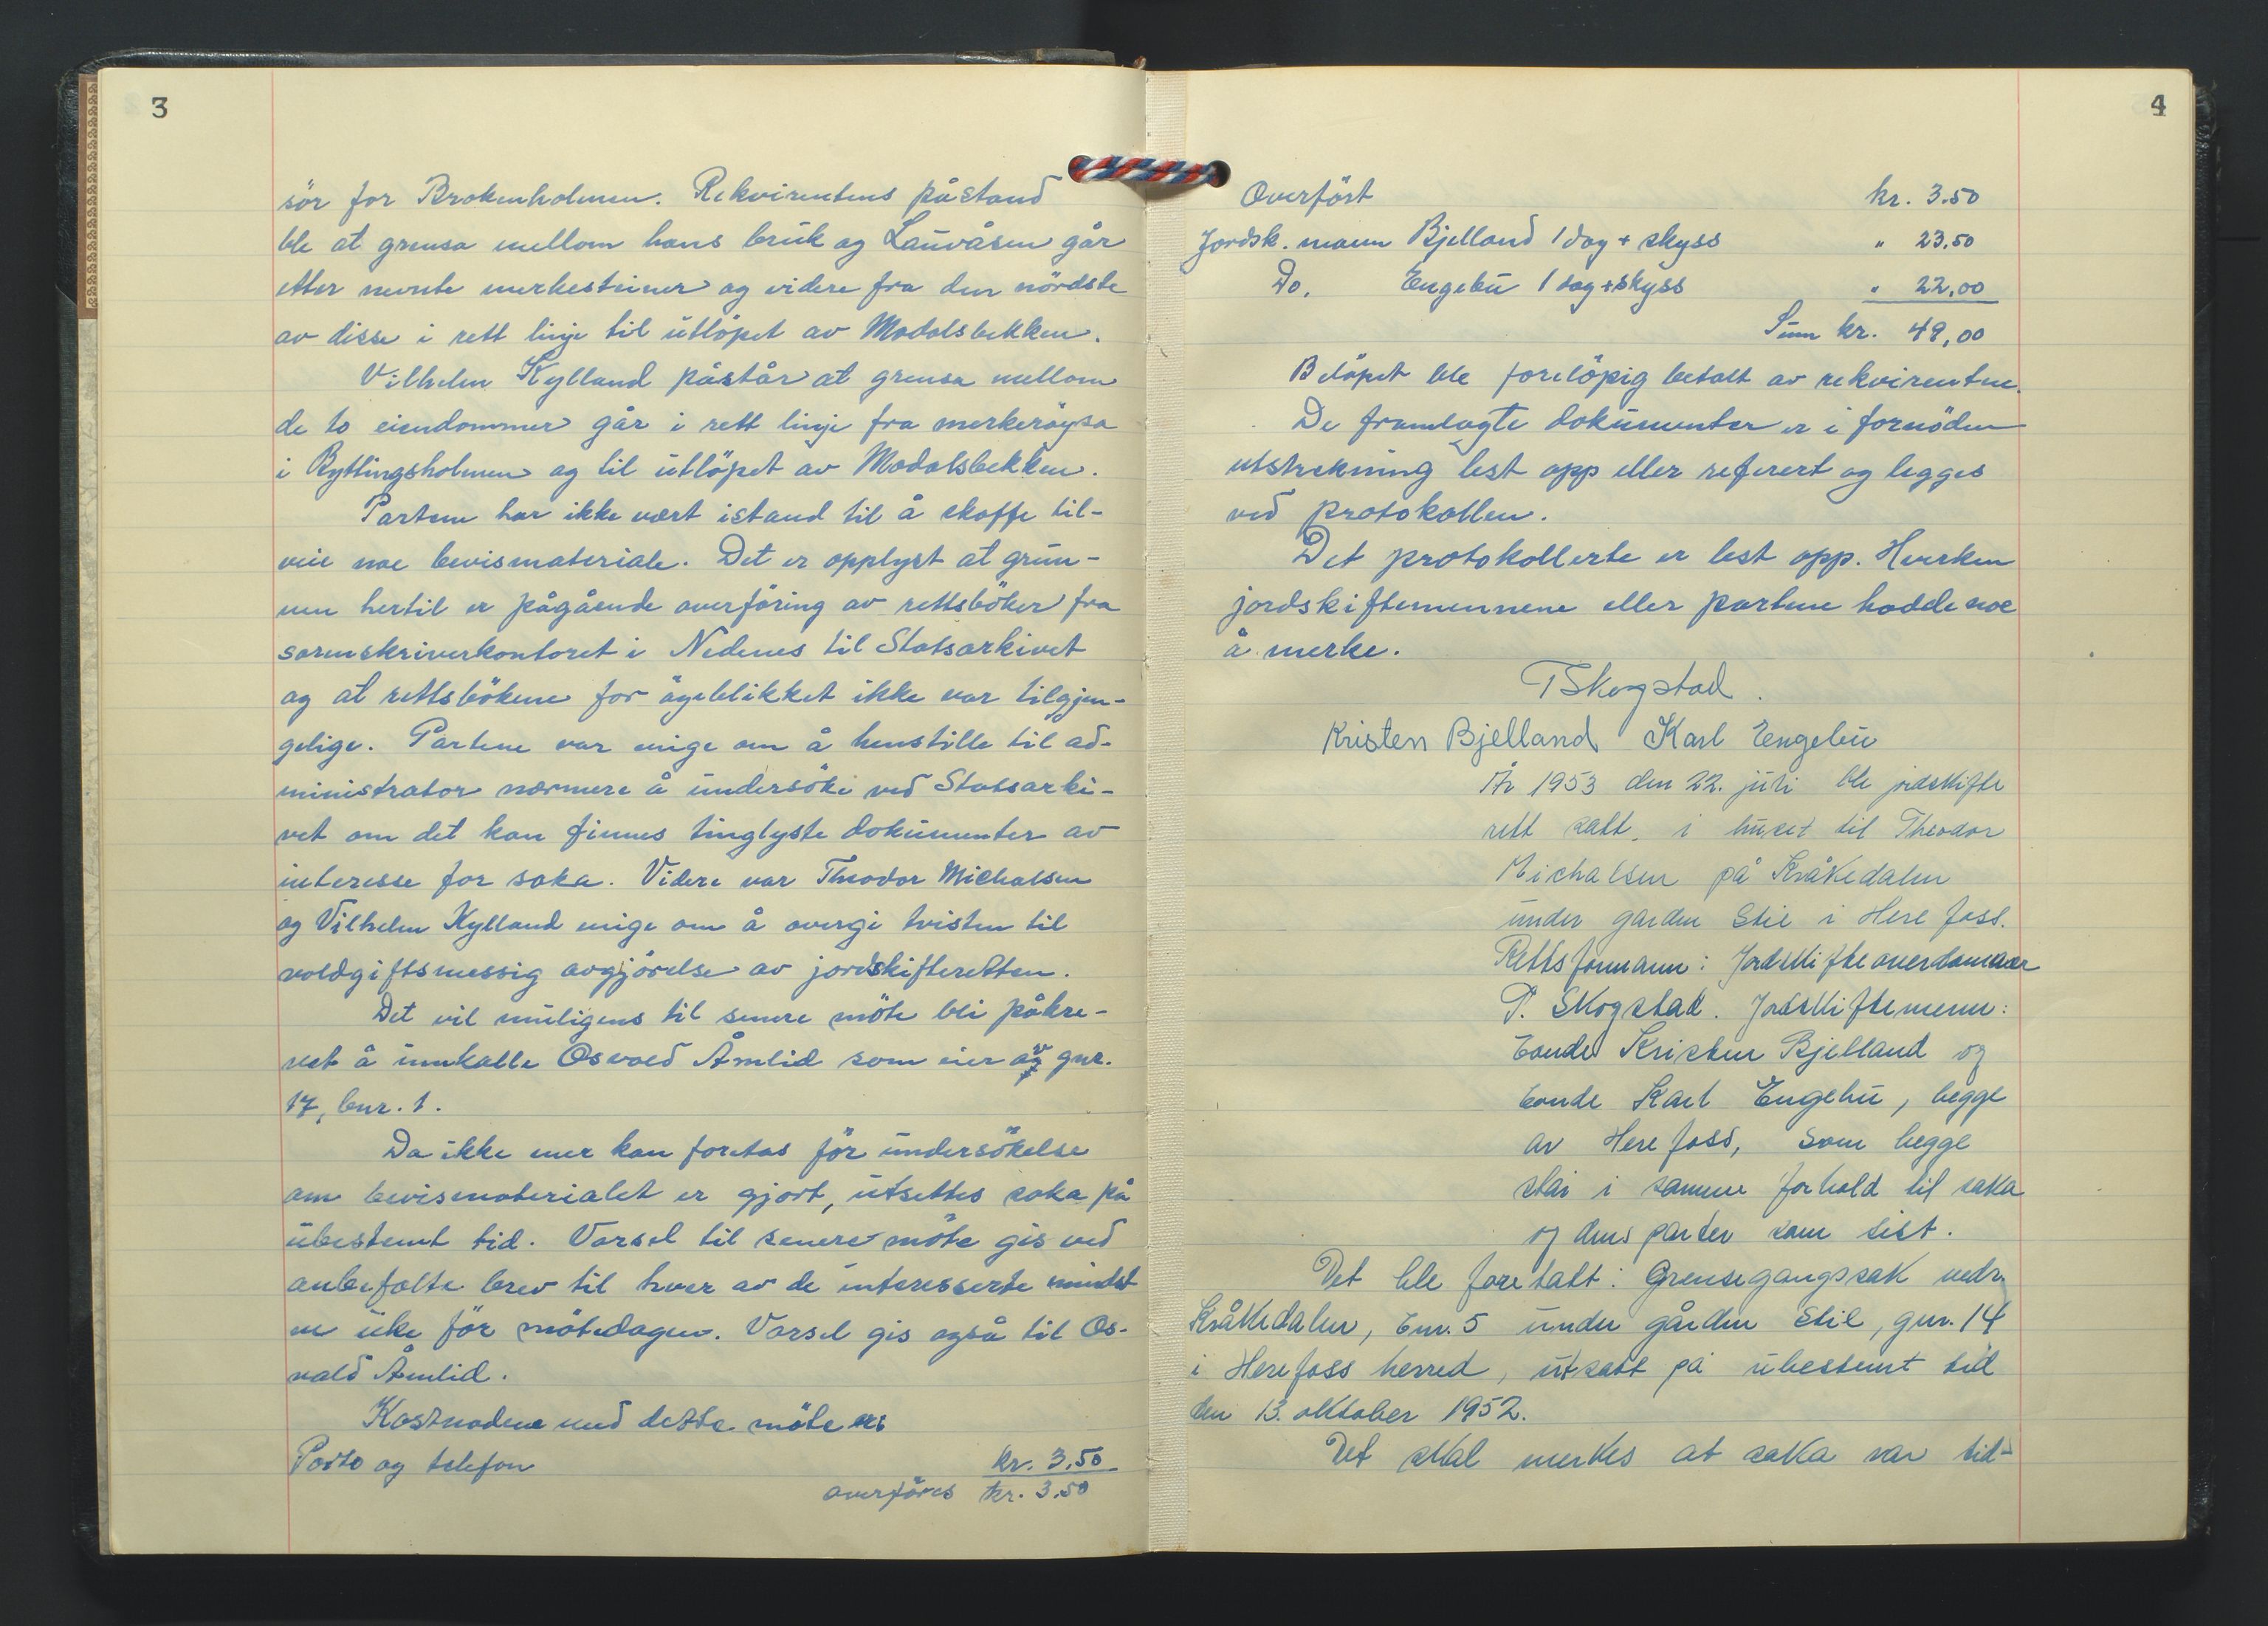 3
sör for Brokenholmen. Rekvirentens påstand
ble at grensa mellom hans bruk og Lauvåsen går
etter nevnte merkesteiner og videre fra den nördste
av disse i rett linje til utlöpet av Modalsbekken.
Vilhelm Kylland påstår at grensa mellom
de to eiendommer går i rett linje fra merkeröysa
i Ryttingsholmen og til utlöpet av Modalsbekken.
Partene har ikke vært istand til å skaffe til-
veie noe bevismateriale. Det er opplyst at grun-
nen hertil er pågående overföring av rettsböker fra
sorenskriverkontoret i Nedenes til Statsarkivet
og at rettsbökene for öyeblikket ikke var tilgjen-
gelige. Partene var enige om å henstille til ad-
ministrator nærmere å undersöke ved Statsarki-
vet om det kan finnes tinglyste dokumenter av
interesse for saka. Videre var Theodor Michalsen
og Vilhelm Kylland enige om å overgi tvisten til
voldgiftsmessig avgjörelse av jordskifteretten.
Det vil muligens til senere möte bli påkre-
vet å innkalle Osvald Åmlid som eier av gnr.
17, bnr. 1.
Da ikke mer kan foretas för undersökelse
om bevismaterialet er gjort, utsettes saka på
ubestemt tid. Varsel til senere möte gis ved
anbefalte brev til hver av de interesserte mindst
en uke för mötedagen. Varsel gis også til Os-
vald Åmlid.
Kostnadene med dette möte er:
Porto og telefon kr. 3.50
overföres kr. 3.50
4
Overfört kr. 3.50
Jordsk. mann Bjelland 1 dag + skyss " 23.50
Do. Engebu 1 dag + skyss " 22,00
Sum kr. 49,00
Belöpet ble forelöpig betalt av rekvirenten.
De framlagte dokumenter er i fornöden
utstrekning lest opp eller referert og legges
ved protokollen.
Det protokollerte er lest opp. Hverken
jordskiftemennene eller partene hadde noe
å merke.
T Skogstad.
Kristen Bjelland Karl Engebu
År 1953 den 22. juli ble jordskifte
rett satt i huset til Theodor
Michalsen på Kråkedalen
under garden Stie i Herefoss.
Rettsformann: Jordskifteoverdommer
T. Skogstad. Jordskiftemenn:
bonde Kristen Bjelland og
bonde Karl Engebu, begge
av Herefoss, som begge
står i samme forhold til saka
og dens parter som sist.
Det ble foretatt: Grensegangssak vedr.
Kråkedalen, bnr. 5 under gården Stie, gnr. 14
i Herefoss herred, utsatt på ubestemt tid
den 13. oktober 1952.
Det skal merkes at saka var tid-